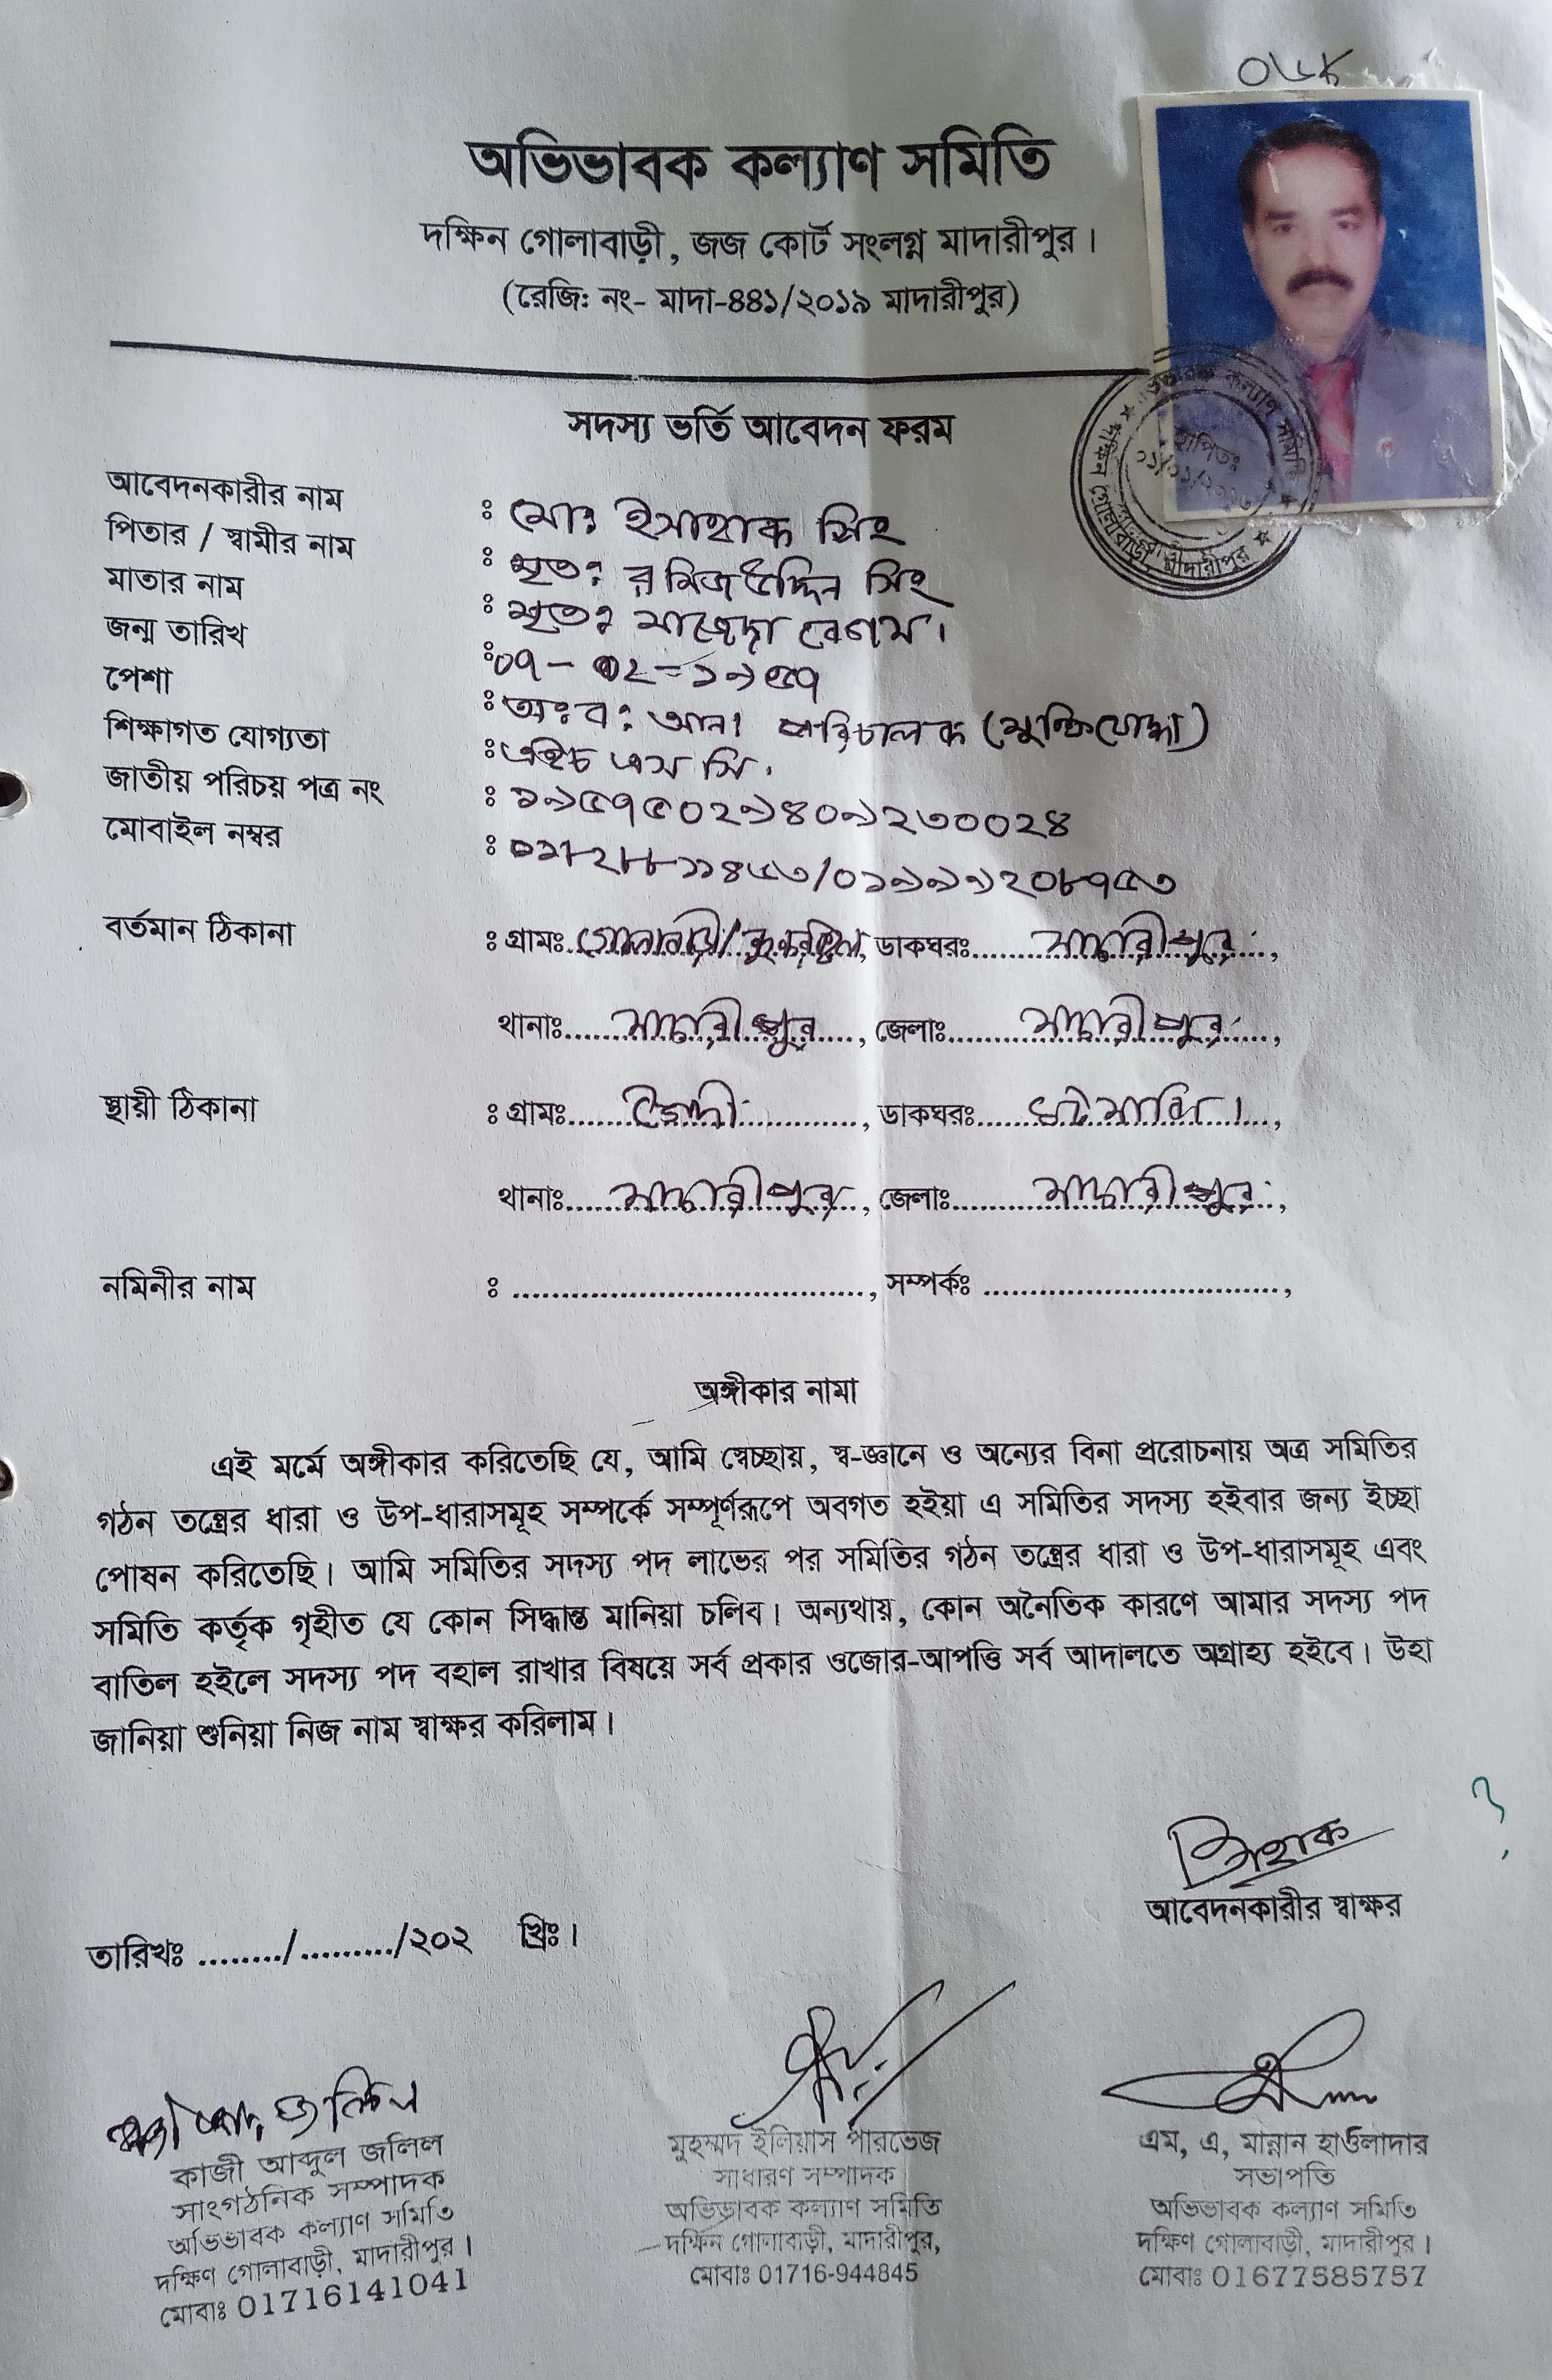 অভিভাবক কল্যাণ সমিতি
দক্ষিন গোলাবাড়ী, জজ কোর্ট সংলগ্ন মাদারীপুর।
(রেজি: নং- মাদা-৪৪১/২০১৯ মাদারীপুর)
সদস্য ভর্তি আবেদন ফরম
আবেদনকারীর নাম : মোঃ ইসাহাক সিং
পিতার / স্বামীর নাম : মৃতঃ রমিজউদ্দিন সিং
মাতার নাম : মৃতঃ মাজেদা বেগম।
জন্ম তারিখ : ০৭-০২-১৯৫৭
পেশা : অঃবঃ আনঃ পরিচালক (মুক্তিযোদ্ধা)
শিক্ষাগত যোগ্যতা : এইচ এস সি.
জাতীয় পরিচয় পত্র নং : ১৯৫৭৫০২৯৪০৯২৩০০২৪
মোবাইল নম্বর
বর্তমান ঠিকানা : গ্রামঃ গোলাবাড়ী/ ডাকঘরঃ মাদারীপুর,
থানাঃ মাদারীপুর, জেলাঃ মাদারীপুর,
স্থায়ী ঠিকানা : গ্রামঃ ডাকঘরঃ ঘটমাঝি।,
থানাঃ মাদারীপুর, জেলাঃ মাদারীপুর,
নমিনীর নাম : ...................................., সম্পর্কঃ ..............................,
অঙ্গীকার নামা
এই মর্মে অঙ্গীকার করিতেছি যে, আমি স্বেচ্ছায়, স্ব-জ্ঞানে ও অন্যের বিনা প্ররোচনায় অত্র সমিতির
গঠন তন্ত্রের ধারা ও উপ-ধারাসমূহ সম্পর্কে সম্পূর্ণরূপে অবগত হইয়া এ সমিতির সদস্য হইবার জন্য ইচ্ছা
পোষন করিতেছি। আমি সমিতির সদস্য পদ লাভের পর সমিতির গঠন তন্ত্রের ধারা ও উপ-ধারাসমূহ এবং
সমিতি কর্তৃক গৃহীত যে কোন সিদ্ধান্ত মানিয়া চলিব। অন্যথায়, কোন অনৈতিক কারণে আমার সদস্য পদ
বাতিল হইলে সদস্য পদ বহাল রাখার বিষয়ে সর্ব প্রকার ওজোর-আপত্তি সর্ব আদালতে অগ্রাহ্য হইবে। উহা
জানিয়া শুনিয়া নিজ নাম স্বাক্ষর করিলাম।
ইসহাক
আবেদনকারীর স্বাক্ষর
তারিখঃ ........./........../২০২ খ্রিঃ।
কাজী আব্দুল জলিল
সাংগঠনিক সম্পাদক
অভিভাবক কল্যাণ সমিতি
দক্ষিণ গোলাবাড়ী, মাদারীপুর।
মোবাঃ 01716141041
মুহম্মদ ইলিয়াস পারভেজ
সাধারণ সম্পাদক
অভিভাবক কল্যাণ সমিতি
দক্ষিন গোলাবাড়ী, মাদারীপুর,
মোবাঃ 01716-944845
এম, এ, মান্নান হাওলাদার
সভাপতি
অভিভাবক কল্যাণ সমিতি
দক্ষিণ গোলাবাড়ী, মাদারীপুর।
মোবাঃ 01677585757